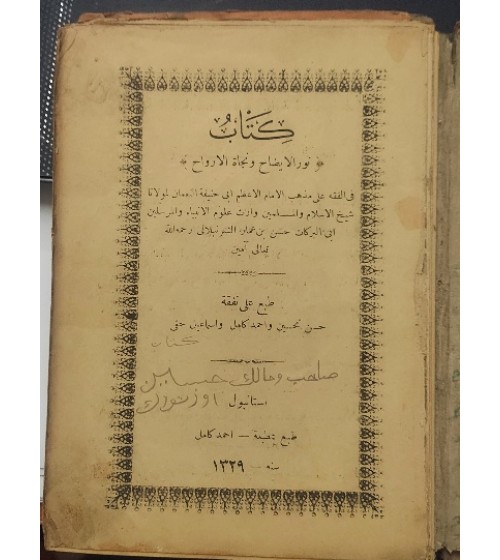 كِتَابُ
﴿ نور الايضاح ونجاة الارواح ﴾
فى الفقه على مذهب الامام الاعظم ابى حنيفة النعمان لمولانا
شيخ الاسلام والمسلمين وارث علوم الانبياء والمرسلين
ابى البركات حسن بن عمار الشرنبلالى رحمه الله
تعالى آمين
طبع على نفقة
حسن تحسين واحمد كامل واسماعيل حقى
كتاب
صاحب ومالك حسين
استانبول
طبع بمطبعة – احمد كامل
سنه – ١٣٢٩